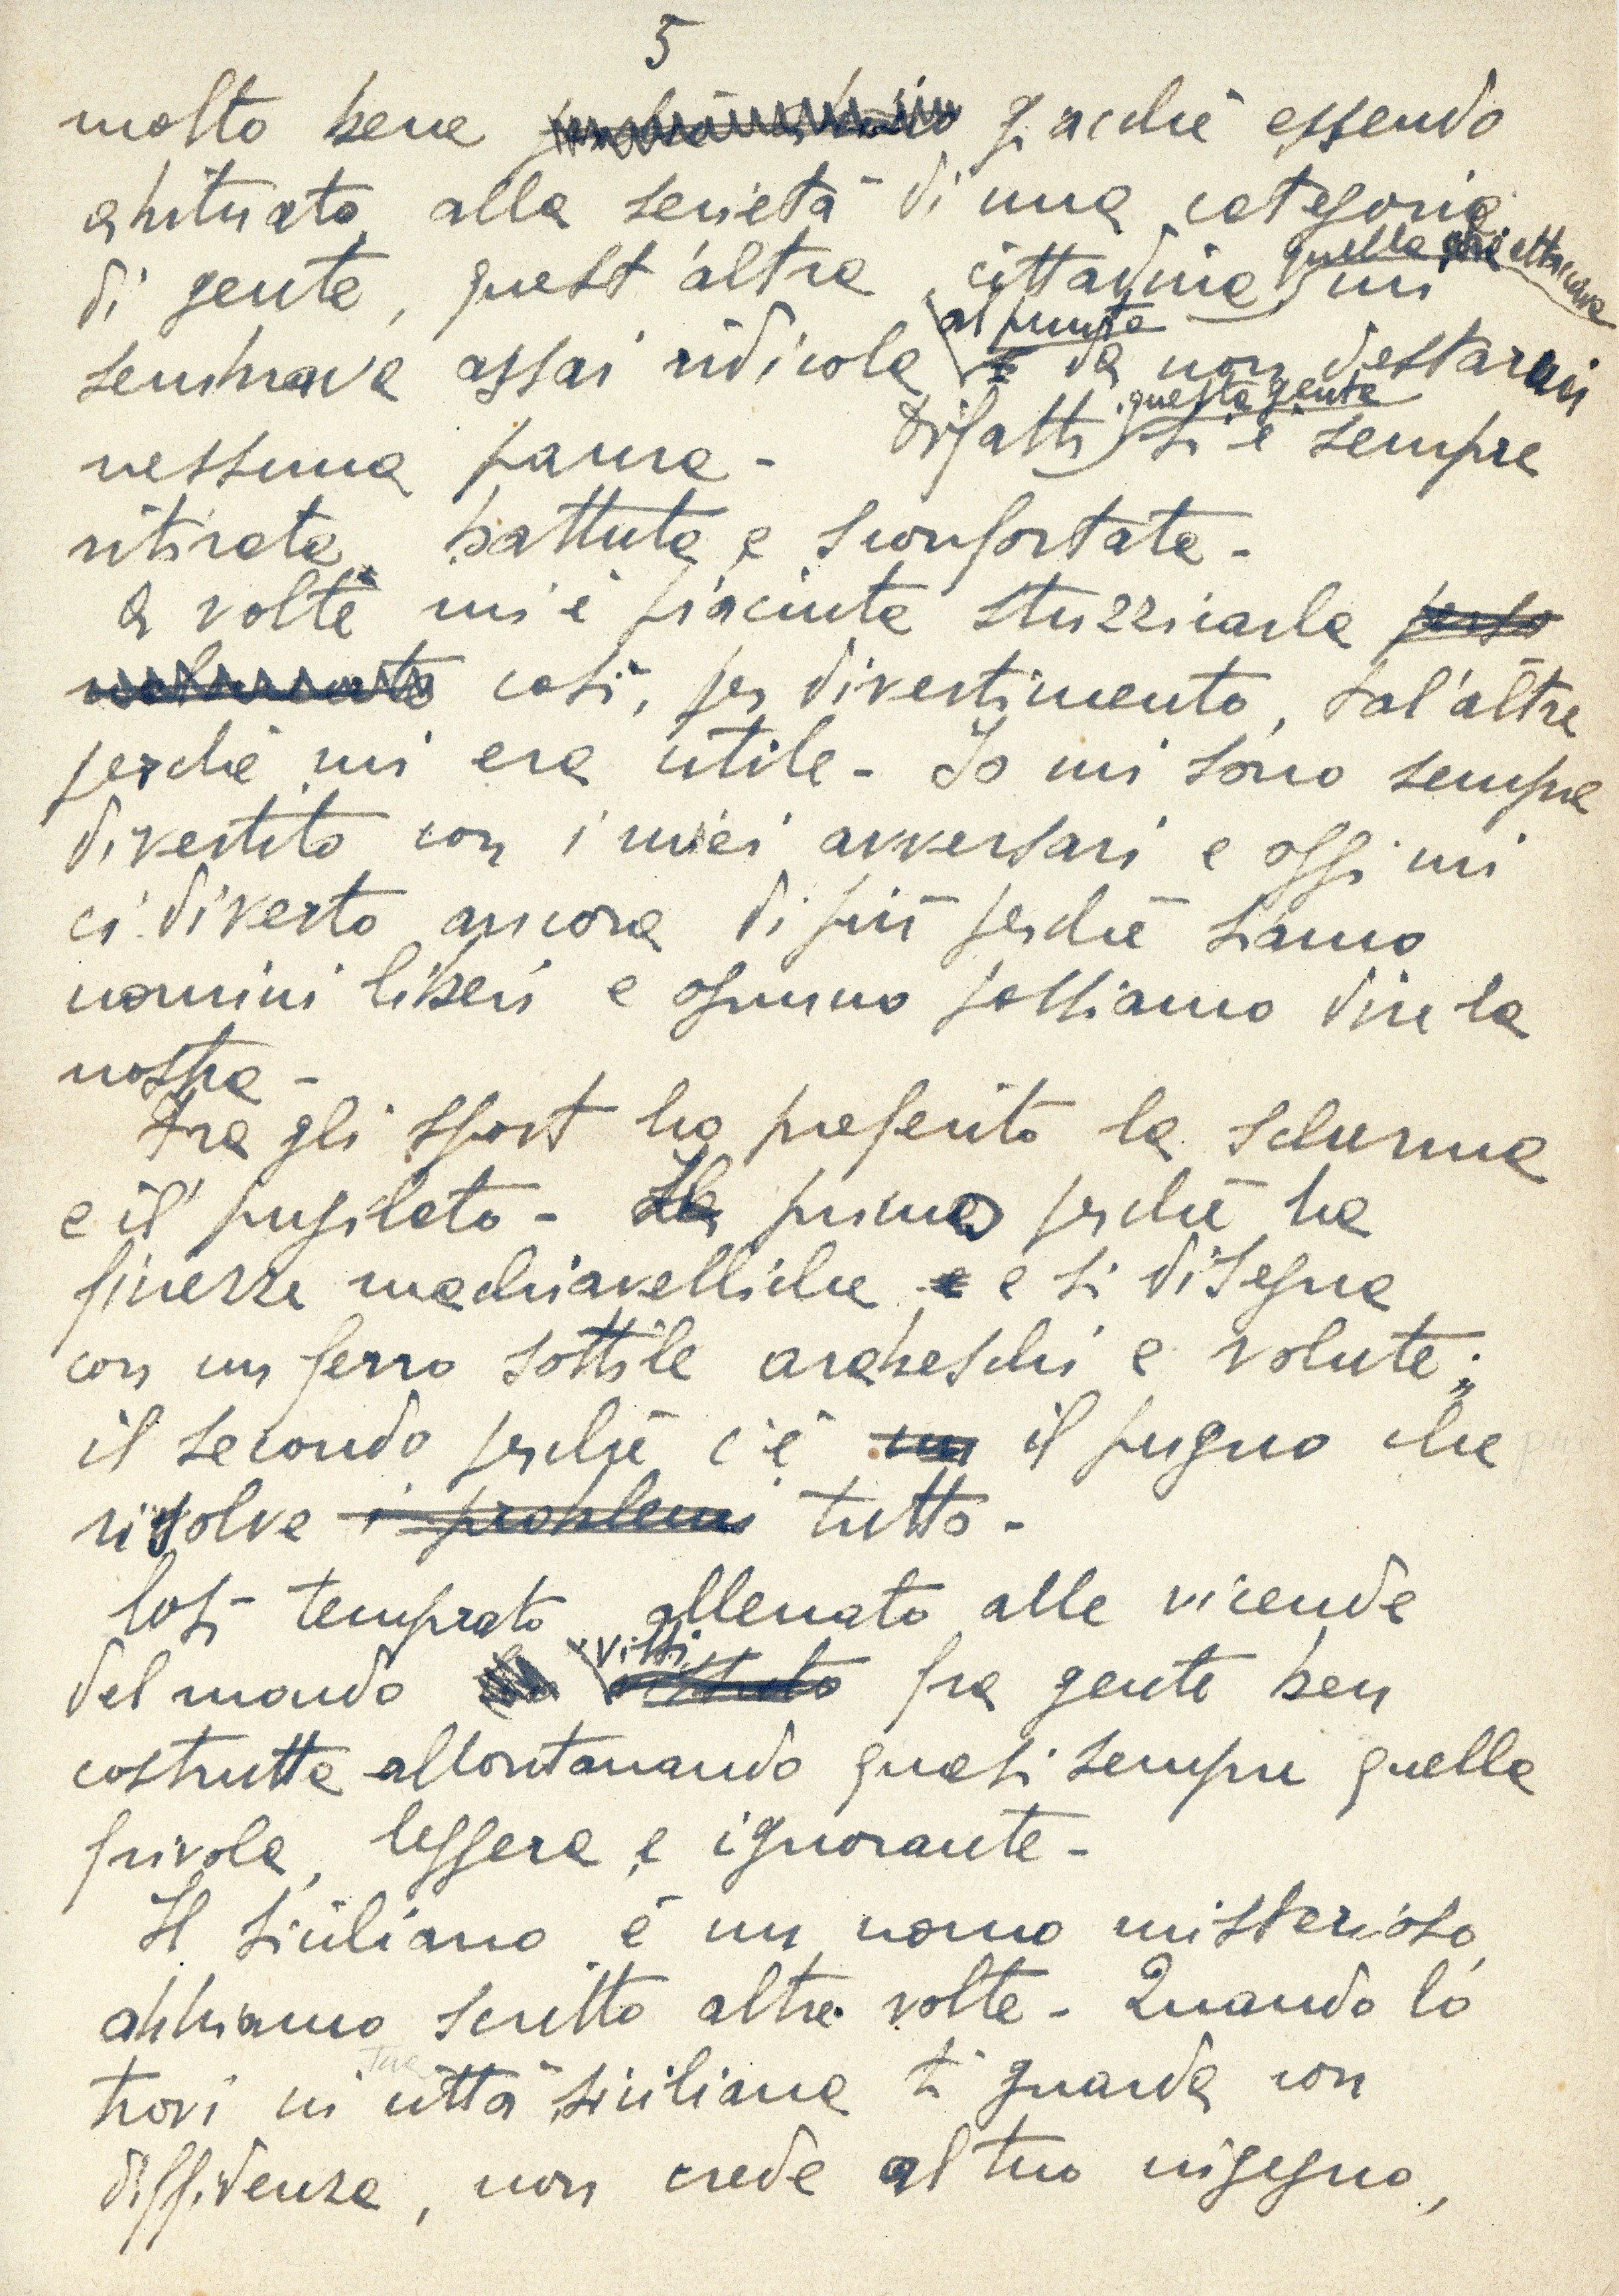 5
molto bene giacché essendo
abituato alla serietà di una categoria
di gente, quest'altra cittadina quella che mi
sembrava assai ridicola al punto da non destarmi
nessuna paura - Difatti questa gente si è sempre
ritirata battuta e sconfortata -
a volte mi è piaciuta stuzzicarla perso
nalmente così, per divertimento, tal'altra
perché mi era utile - Io mi sono sempre
divertito con i miei avversari e oggi mi
ci diverto ancora di più perché siamo
uomini liberi e ognuno possiamo dire la
nostra -
Fra gli sport ho preferito la scherma
e il pugilato - La prima perché ha
finezze machiavelliche e si disegna
con un ferro sottile arabeschi e volute;
il secondo perché c'è un il pugno che
risolve i problemi tutto -
Così temprato allenato alle vicende
del mondo vissi vissuto fra gente ben
costrutta allontanando quasi sempre quella
frivola, leggera e ignorante -
Il siciliano è un uomo misterioso,
abbiamo scritto altre volte - Quando lo
trovi in città siciliana ti guarda con
diffidenza, non crede al tuo ingegno,